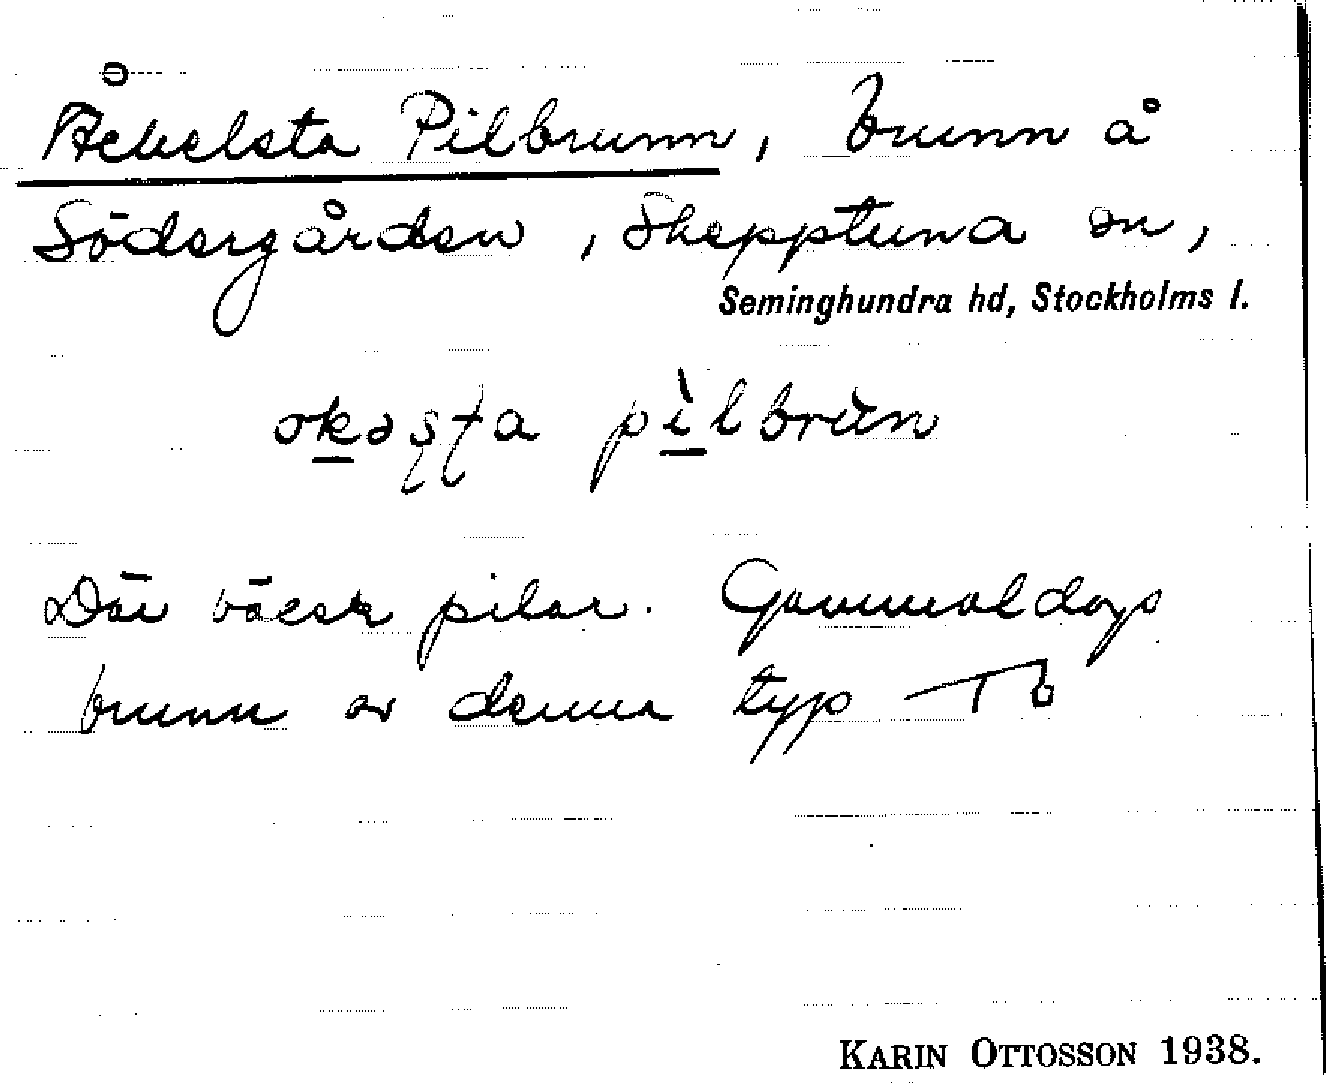 Åkelsta Pilbrunn, brunn å
Södergården, Skepptuna sn,
Seminghundra hd, Stockholms l.
pìlbrùn
Där växer pilar. Gammaldags
brunn av denna typ
KARIN OTTOSSON 1938.